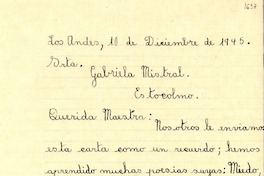 1657
Los Andes, 11 de Diciembre de 1945.
Srta.
Gabriela Mistral.
Estocolmo.
Querida Maestra:
Nosotros le enviamos
esta carta como un recuerdo; hemos
aprendido muchas poesías suyas: Miedo,